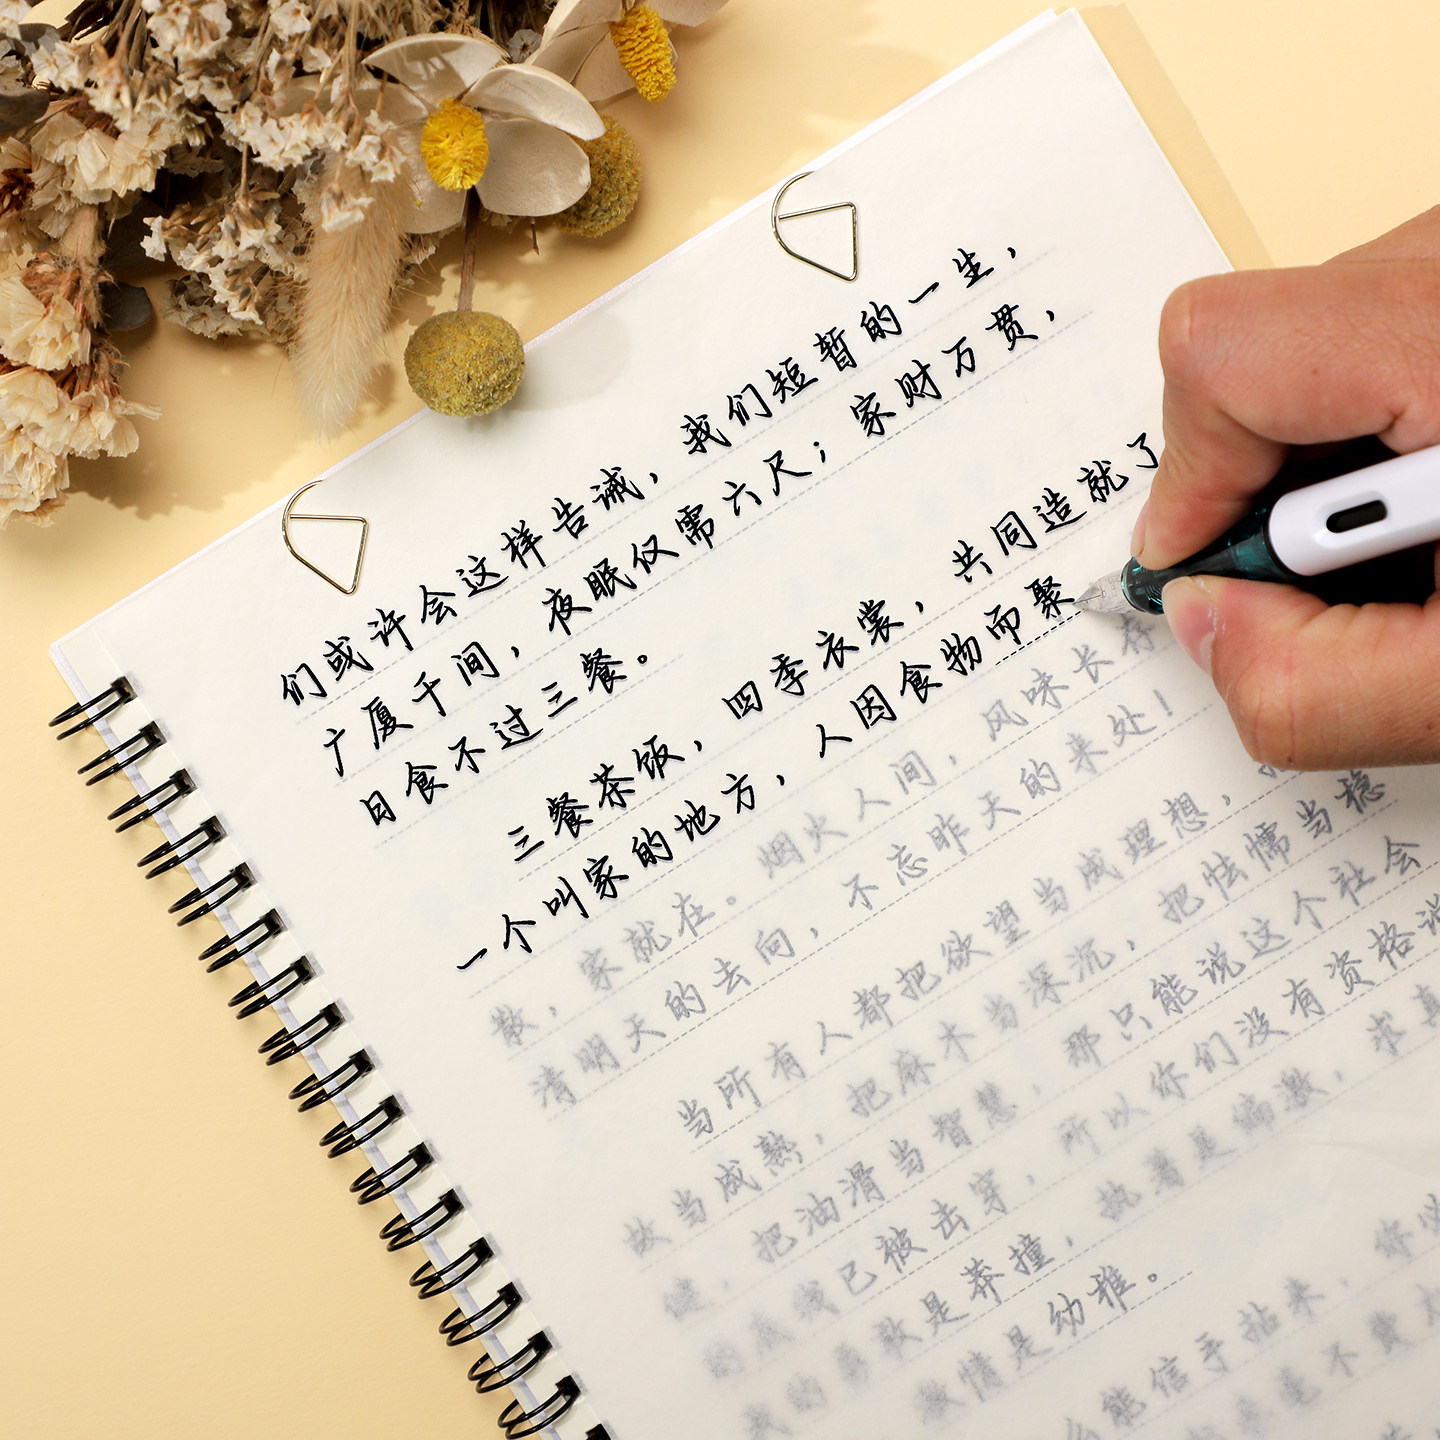 们或许会这样告诫，我们短暂的一生，
广厦千间，夜眠仅需六尺；家财万贯，
日食不过三餐。
三餐茶饭，四季衣裳，共同造就了
一个叫家的地方，人因食物而聚
散，家就在。烟火人间，风味长存
清明天的去向，不忘昨天的来处！
当所有人都把欲望当成理想，把
故当成熟，把麻木当深沉，把怯懦当稳
健，把油滑当智慧，那只能说这个社会
的底线已被击穿，所以你们没有资格说
我的勇敢是莽撞，执着是偏激，求真
激情是幼稚。
能信手拈来，你必
毫不费力